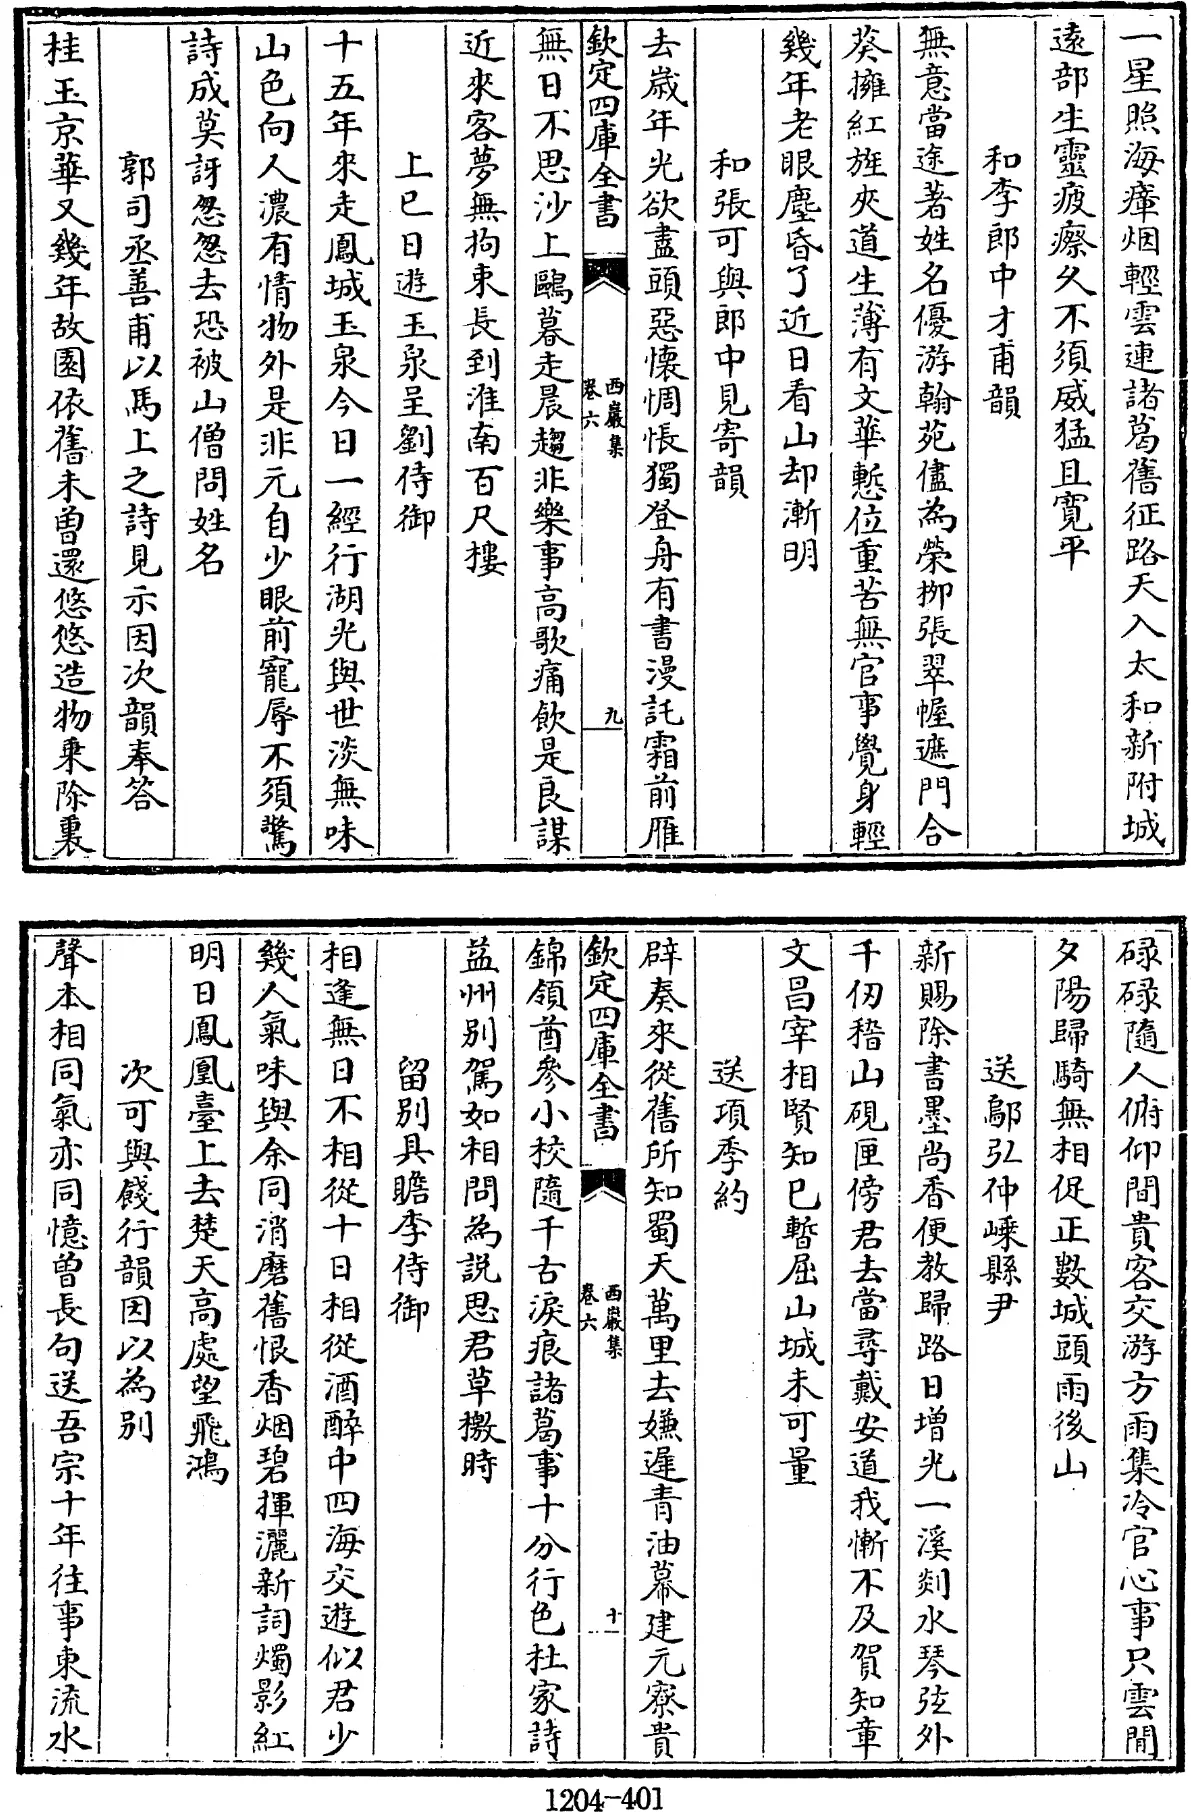 一星照海瘴烟輕雲連諸葛舊征路天入太和新附城
遠部生靈疲瘵久不須威猛且寛平
和李郎中才甫韻
無意當途著姓名優游翰苑儘為榮柳張翠幄遮門合
葵擁紅旌夾道生薄有文華慙位重苦無官事覺身輕
幾年老眼塵昏了近日看山却漸明
和張可與郎中見寄韻
去歳年光欲盡頭惡懐惆悵獨登舟有書漫託霜前雁
欽定四庫全書
西巖集
卷六
九
無日不思沙上鷗暮走晨趨非樂事高歌痛飲是良謀
近來客夢無拘束長到淮南百尺樓
上巳日遊玉泉呈劉侍御
十五年來走鳳城玉泉今日一經行湖光與世淡無味
山色向人濃有情物外是非元自少眼前寵辱不須驚
詩成莫訝怱怱去恐被山僧問姓名
郭司丞善甫以馬上之詩見示因次韻奉答
桂玉京華又幾年故園依舊未曾還悠悠造物乗除裏
碌碌隨人俯仰間貴客交游方雨集冷官心事只雲閒
夕陽歸騎無相促正數城頭雨後山
送鄔弘仲嵊縣尹
新賜除書墨尚香便教歸路日增光一溪剡水琴弦外
千仞稽山硯匣傍君去當尋戴安道我慚不及賀知章
文昌宰相賢知已暫屈山城未可量
送項季約
辟奏來從舊所知蜀天萬里去嫌遲青油幕建元寮貴
欽定四庫全書
西巖集
卷六
十
錦領酋參小校隨千古淚痕諸葛事十分行色杜家詩
益州别駕如相問為説思君草檄時
留别具瞻李侍御
相逢無日不相從十日相從酒醉中四海交遊似君少
幾人氣味與余同消磨舊恨香烟碧揮灑新詞燭影紅
明日鳳凰臺上去楚天高處望飛鴻
次可與餞行韻因以為别
聲本相同氣亦同憶曾長句送吾宗十年往事東流水
1204-401